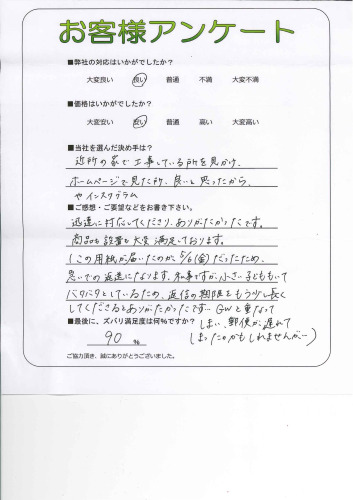 お客様アンケート
■弊社の対応はいかがでしたか?
大変良い 良い 普通 不満 大変不満
■価格はいかがでしたか?
大変安い 安い 普通 高い 大変高い
■当社を選んだ決め手は?
近所の家で工事している所を見かけ、
ホームページで見た所、良いと思ったから。
やインスタグラム
■ご感想・ご要望などをお書き下さい。
迅速に対応してくださり、ありがたかったです。
商品も設置も大変満足しております。
(この用紙が届いたのが、5/6(金)だったため、
急いでの返送になります。私事ですが、小さい子どももいて
バタバタとしているため、返信の期限をもう少し長く
してくださるとありがたかったです… GWと重なって
しまい、郵便が遅れて
しまったのかもしれませんが…)
■最後に、ズバリ満足度は何%ですか?
90 %
ご協力頂き、誠にありがとうございました。